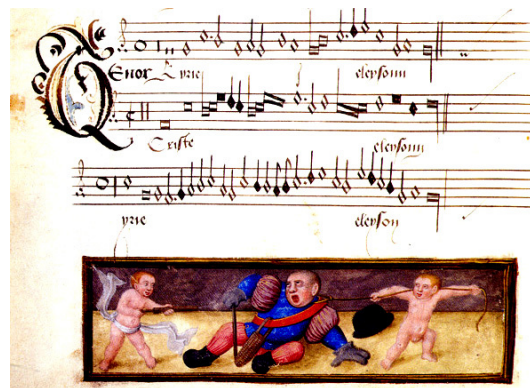 TEnor Kyrie eleysonn
Criste eleysonn
yrie eleyson